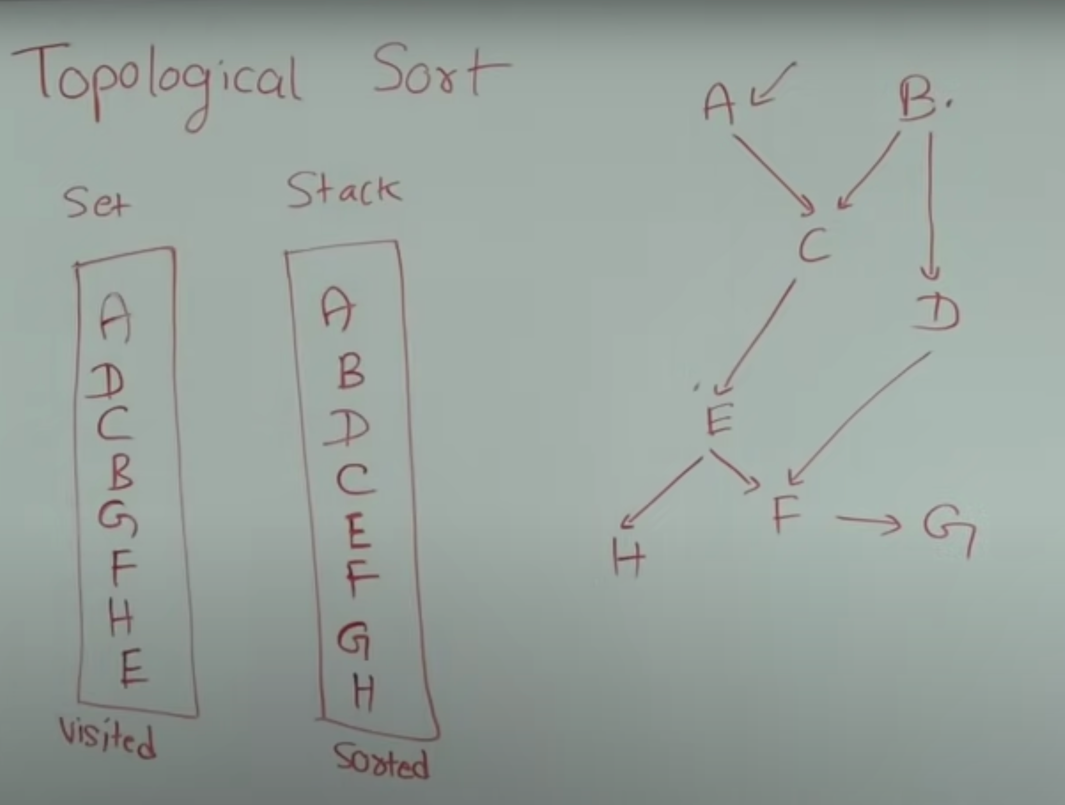 Topological Sort
Set
Stack
A
D
C
B
G
F
H
E
Visited
A
B
D
C
E
F
G
H
Sorted
A
B.
C
D
E
F
G
H